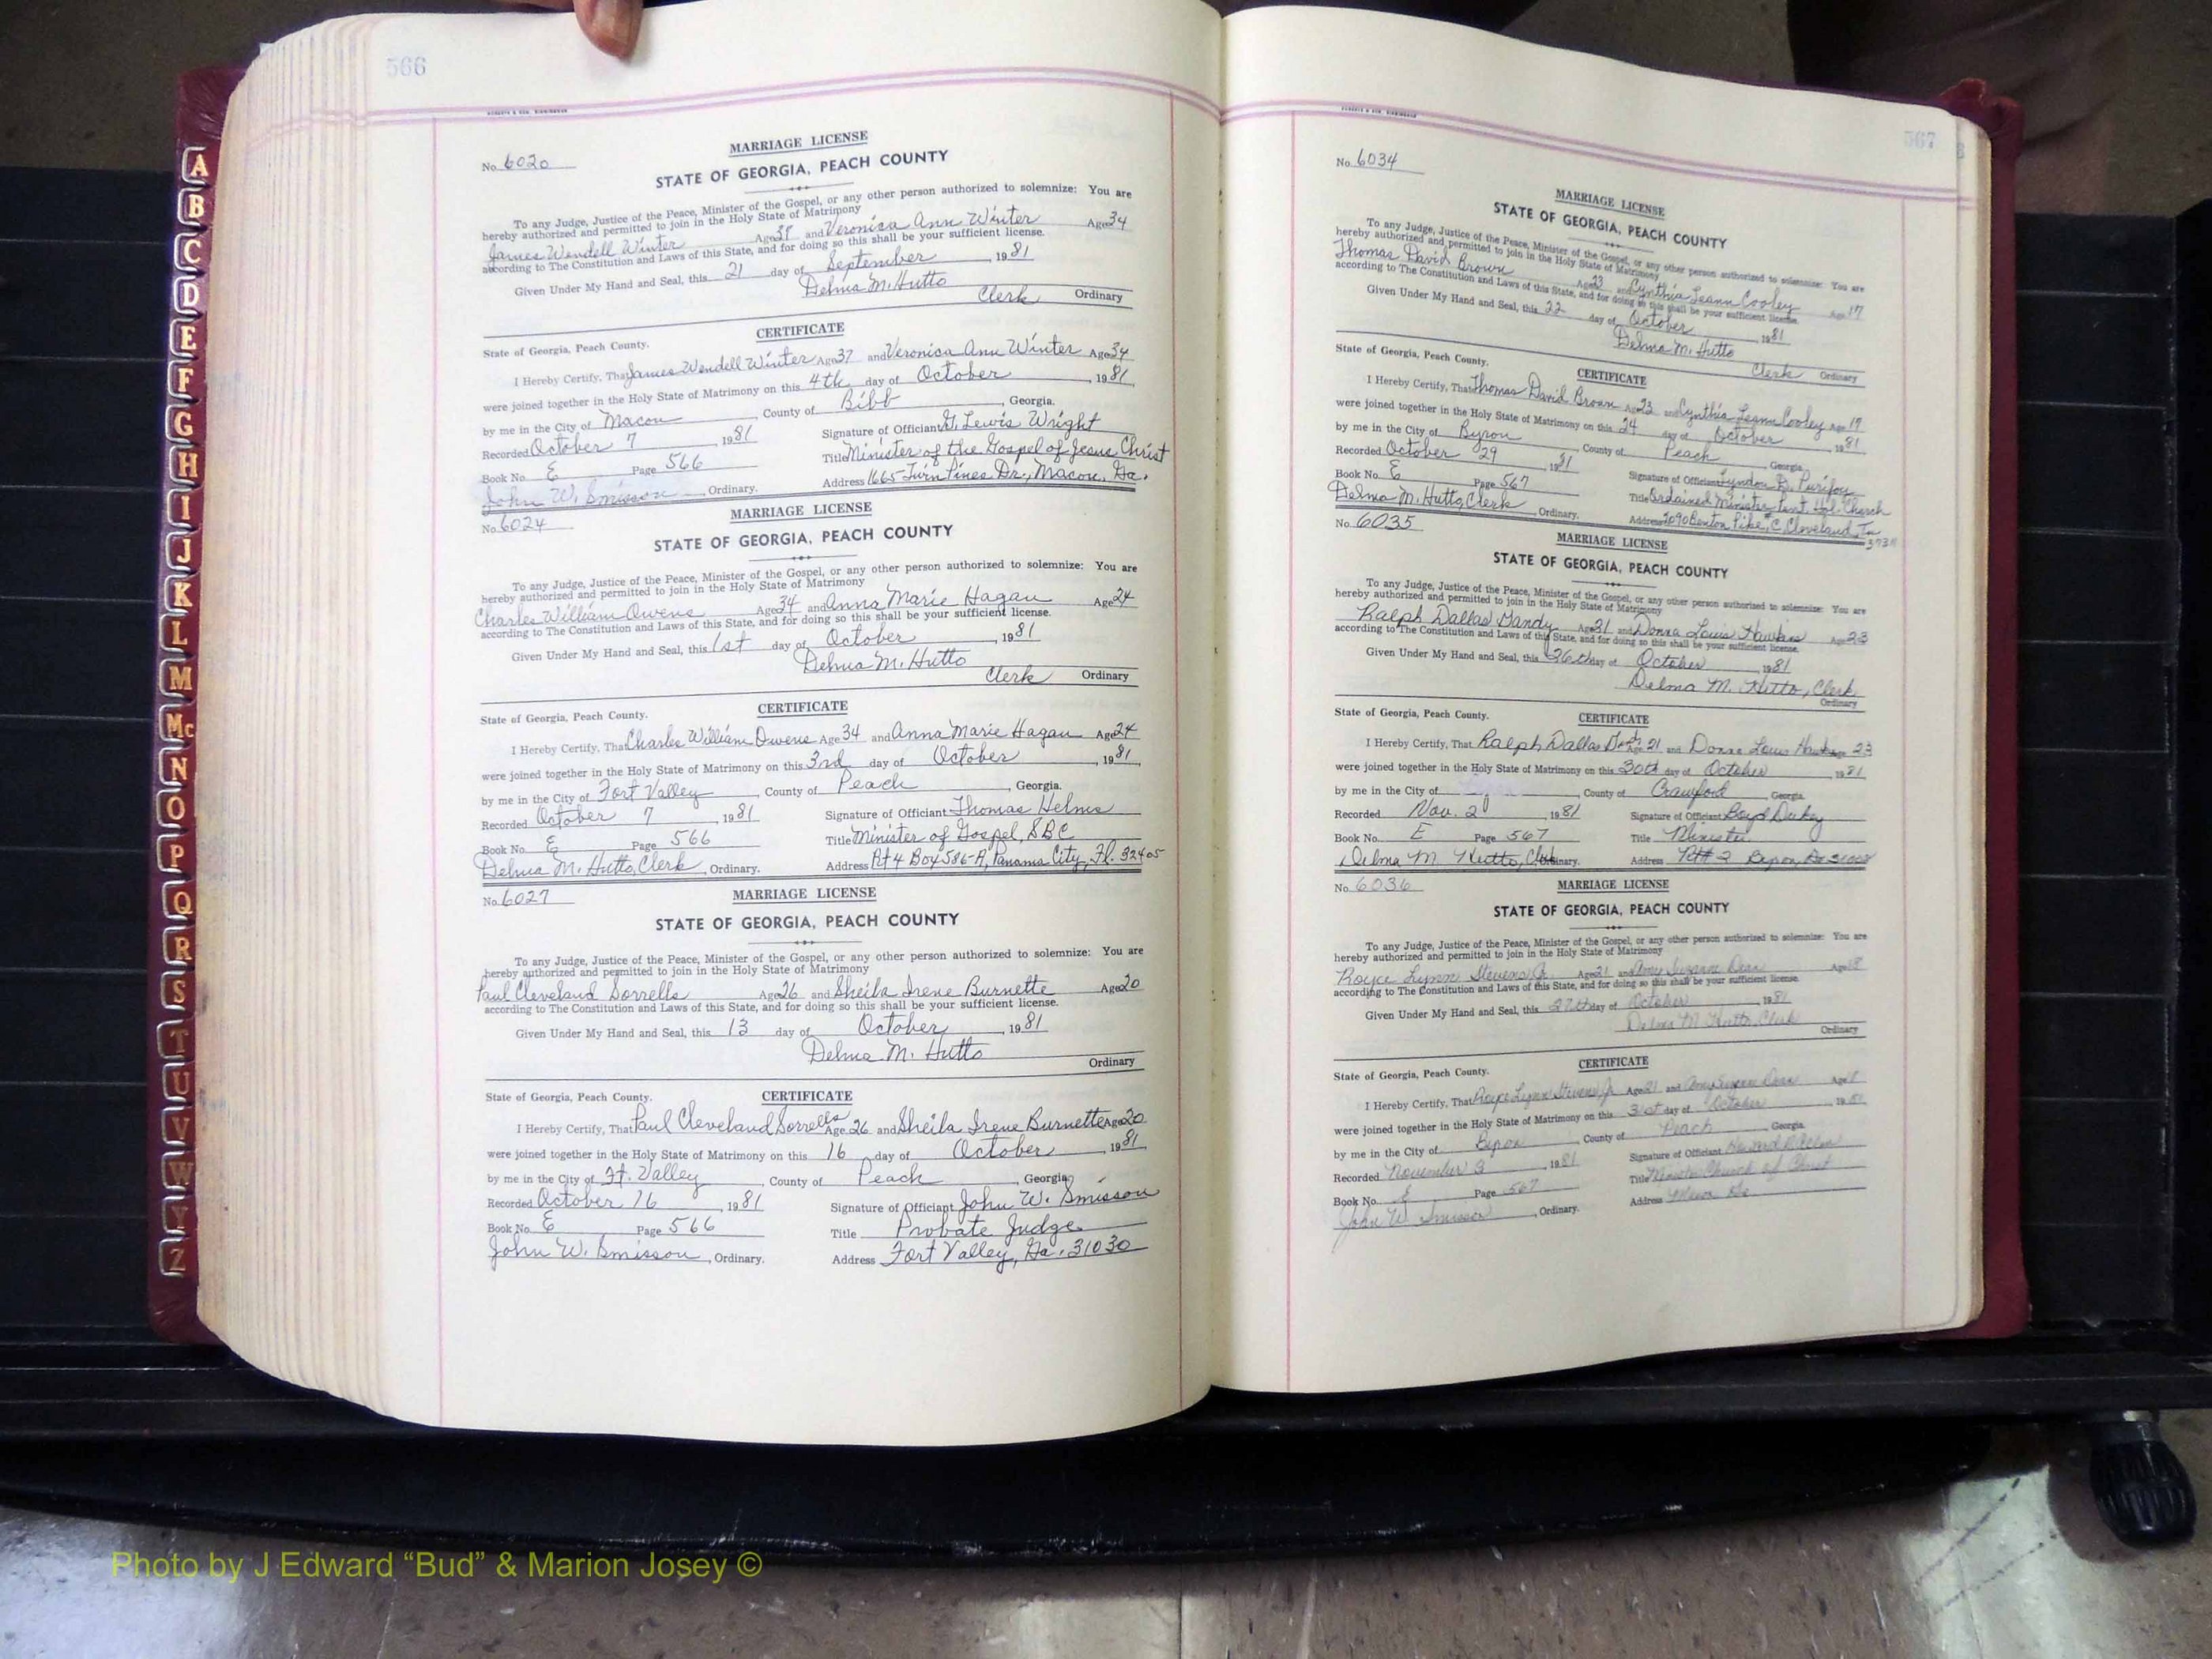 566
MARRIAGE LICENSE
No. 6020
STATE OF GEORGIA, PEACH COUNTY
To any Judge, Justice of the Peace, Minister of the Gospel, or any other person authorized to solemnize: You are
hereby authorized and permitted to join in the Holy State of Matrimony
James Wendell Winter Age and Veronica Ann Winter Age 34
according to The Constitution and Laws of this State, and for doing so this shall be your sufficient license.
Given Under My Hand and Seal, this 21 day of September, 1981
Delma M. Hutto
Clerk Ordinary
CERTIFICATE
State of Georgia, Peach County.
I Hereby Certify, That James Wendell Winter Age 37 and Veronica Ann Winter Age 34
were joined together in the Holy State of Matrimony on this 4th day of October, 1981
by me in the City of Macon, County of Bibb, Georgia.
Recorded October 7, 1981 Signature of Officiant G. Lewis Wright
Book No. E Page 566 Title Minister of the Gospel of Jesus Christ
John W. Smisson, Ordinary. Address 1665 Twin Pines Dr., Macon, Ga.
No. 6024
MARRIAGE LICENSE
STATE OF GEORGIA, PEACH COUNTY
To any Judge, Justice of the Peace, Minister of the Gospel, or any other person authorized to solemnize: You are
hereby authorized and permitted to join in the Holy State of Matrimony
Charles William Owens Age 34 and Anna Marie Hagan Age 24
according to The Constitution and Laws of this State, and for doing so this shall be your sufficient license.
Given Under My Hand and Seal, this 1st day of October, 1981
Delma M. Hutto
Clerk Ordinary
CERTIFICATE
State of Georgia, Peach County.
I Hereby Certify, That Charles William Owens Age 34 and Anna Marie Hagan Age 24
were joined together in the Holy State of Matrimony on this 3rd day of October, 1981
by me in the City of Fort Valley, County of Peach, Georgia.
Recorded October 7, 1981 Signature of Officiant Thomas Helms
Book No. E Page 566 Title Minister of Gospel, SBC
Delma M. Hutto, Clerk, Ordinary. Address Rt 4 Box 586-A, Panama City, Fl. 32405
No. 6027
MARRIAGE LICENSE
STATE OF GEORGIA, PEACH COUNTY
To any Judge, Justice of the Peace, Minister of the Gospel, or any other person authorized to solemnize: You are
hereby authorized and permitted to join in the Holy State of Matrimony
Paul Cleveland Sorrells Age 26 and Sheila Irene Burnette Age 20
according to The Constitution and Laws of this State, and for doing so this shall be your sufficient license.
Given Under My Hand and Seal, this 13 day of October, 1981
Delma M. Hutto
Ordinary
CERTIFICATE
State of Georgia, Peach County.
I Hereby Certify, That Paul Cleveland Sorrells Age 26 and Sheila Irene Burnette Age 20
were joined together in the Holy State of Matrimony on this 16 day of October, 1981
by me in the City of Ft. Valley, County of Peach, Georgia
Recorded October 16, 1981 Signature of Officiant John W. Smisson
Book No. E Page 566 Title Probate Judge
John W. Smisson, Ordinary. Address Fort Valley, Ga. 31030
567
No. 6034
MARRIAGE LICENSE
STATE OF GEORGIA, PEACH COUNTY
To any Judge, Justice of the Peace, Minister of the Gospel, or any other person authorized to solemnize: You are
hereby authorized and permitted to join in the Holy State of Matrimony
Thomas David Brown Age 23 and Cynthia Leann Cooley Age
according to The Constitution and Laws of this State, and for doing so this shall be your sufficient license.
Given Under My Hand and Seal, this 22 day of October, 1981
Delma M. Hutto
Clerk Ordinary
CERTIFICATE
State of Georgia, Peach County.
I Hereby Certify, That Thomas David Brown Age 23 and Cynthia Leann Cooley Age
were joined together in the Holy State of Matrimony on this 24 day of October, 1981
by me in the City of Byron, County of Peach, Georgia
Recorded October 29, 1981 Signature of Officiant Lyndon D. Purifoy
Book No. E Page 567 Title Ordained Minister Pent. Hol. Church
Delma M. Hutto, Clerk, Ordinary. Address 2090 Benton Pike, C Cleveland, Tn
No. 6035
MARRIAGE LICENSE
STATE OF GEORGIA, PEACH COUNTY
To any Judge, Justice of the Peace, Minister of the Gospel, or any other person authorized to solemnize: You are
hereby authorized and permitted to join in the Holy State of Matrimony
Ralph Dallas Gandy Age 21 and Donna Louis Hawkins Age 23
according to The Constitution and Laws of this State, and for doing so this shall be your sufficient license.
Given Under My Hand and Seal, this 26th day of October, 1981
Delma M. Hutto, Clerk
Ordinary
CERTIFICATE
State of Georgia, Peach County.
I Hereby Certify, That Ralph Dallas Gandy Age 21 and Donna Louis Hawkins Age 23
were joined together in the Holy State of Matrimony on this 30th day of October, 1981
by me in the City of, County of Crawford, Georgia
Recorded Nov. 2, 1981 Signature of Officiant Boyd
Book No. E Page 567 Title Minister
Delma M. Hutto, Clerk Ordinary. Address Rt# 2 Byron, Ga
No. 6036
MARRIAGE LICENSE
STATE OF GEORGIA, PEACH COUNTY
To any Judge, Justice of the Peace, Minister of the Gospel, or any other person authorized to solemnize: You are
hereby authorized and permitted to join in the Holy State of Matrimony
Royce Lynn Stevens Jr. Age 21 and Amy Suzanne Dean Age 18
according to The Constitution and Laws of this State, and for doing so this shall be your sufficient license.
Given Under My Hand and Seal, this 27th day of October, 1981
Delma M. Hutto, Clerk
Ordinary
CERTIFICATE
State of Georgia, Peach County.
I Hereby Certify, That Royce Lynn Stevens Jr. Age 21 and Amy Suzanne Dean Age
were joined together in the Holy State of Matrimony on this 31st day of October, 1981
by me in the City of Byron, County of Peach, Georgia
Recorded November 3, 1981 Signature of Officiant
Book No. E Page 567 Title Minister Church of Christ
John W. Smisson, Ordinary. Address Ga
A
B
C
D
E
F
G
H
I
J
K
L
M
Mc
N
O
P
Q
R
S
T
U
V
W
Y
Z
Photo by J Edward “Bud” & Marion Josey ©